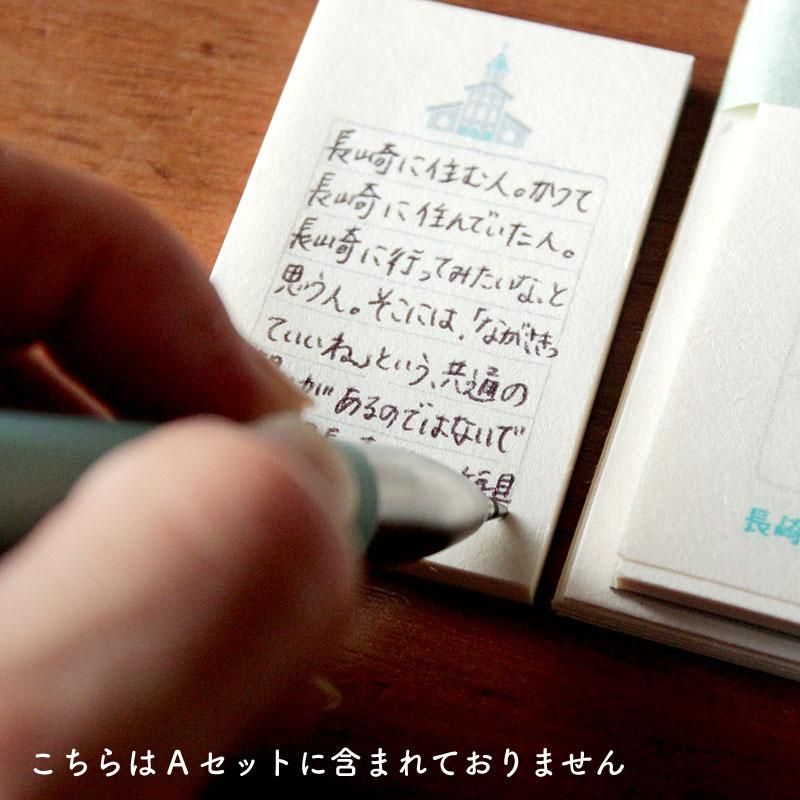 長崎に住む人。かつて
長崎に住んでいた人。
長崎に行ってみたいな、と
思う人。そこには、「ながさきっ
ていいね」という、共通の
があるのではないで
長崎
こちらはAセットに含まれておりません